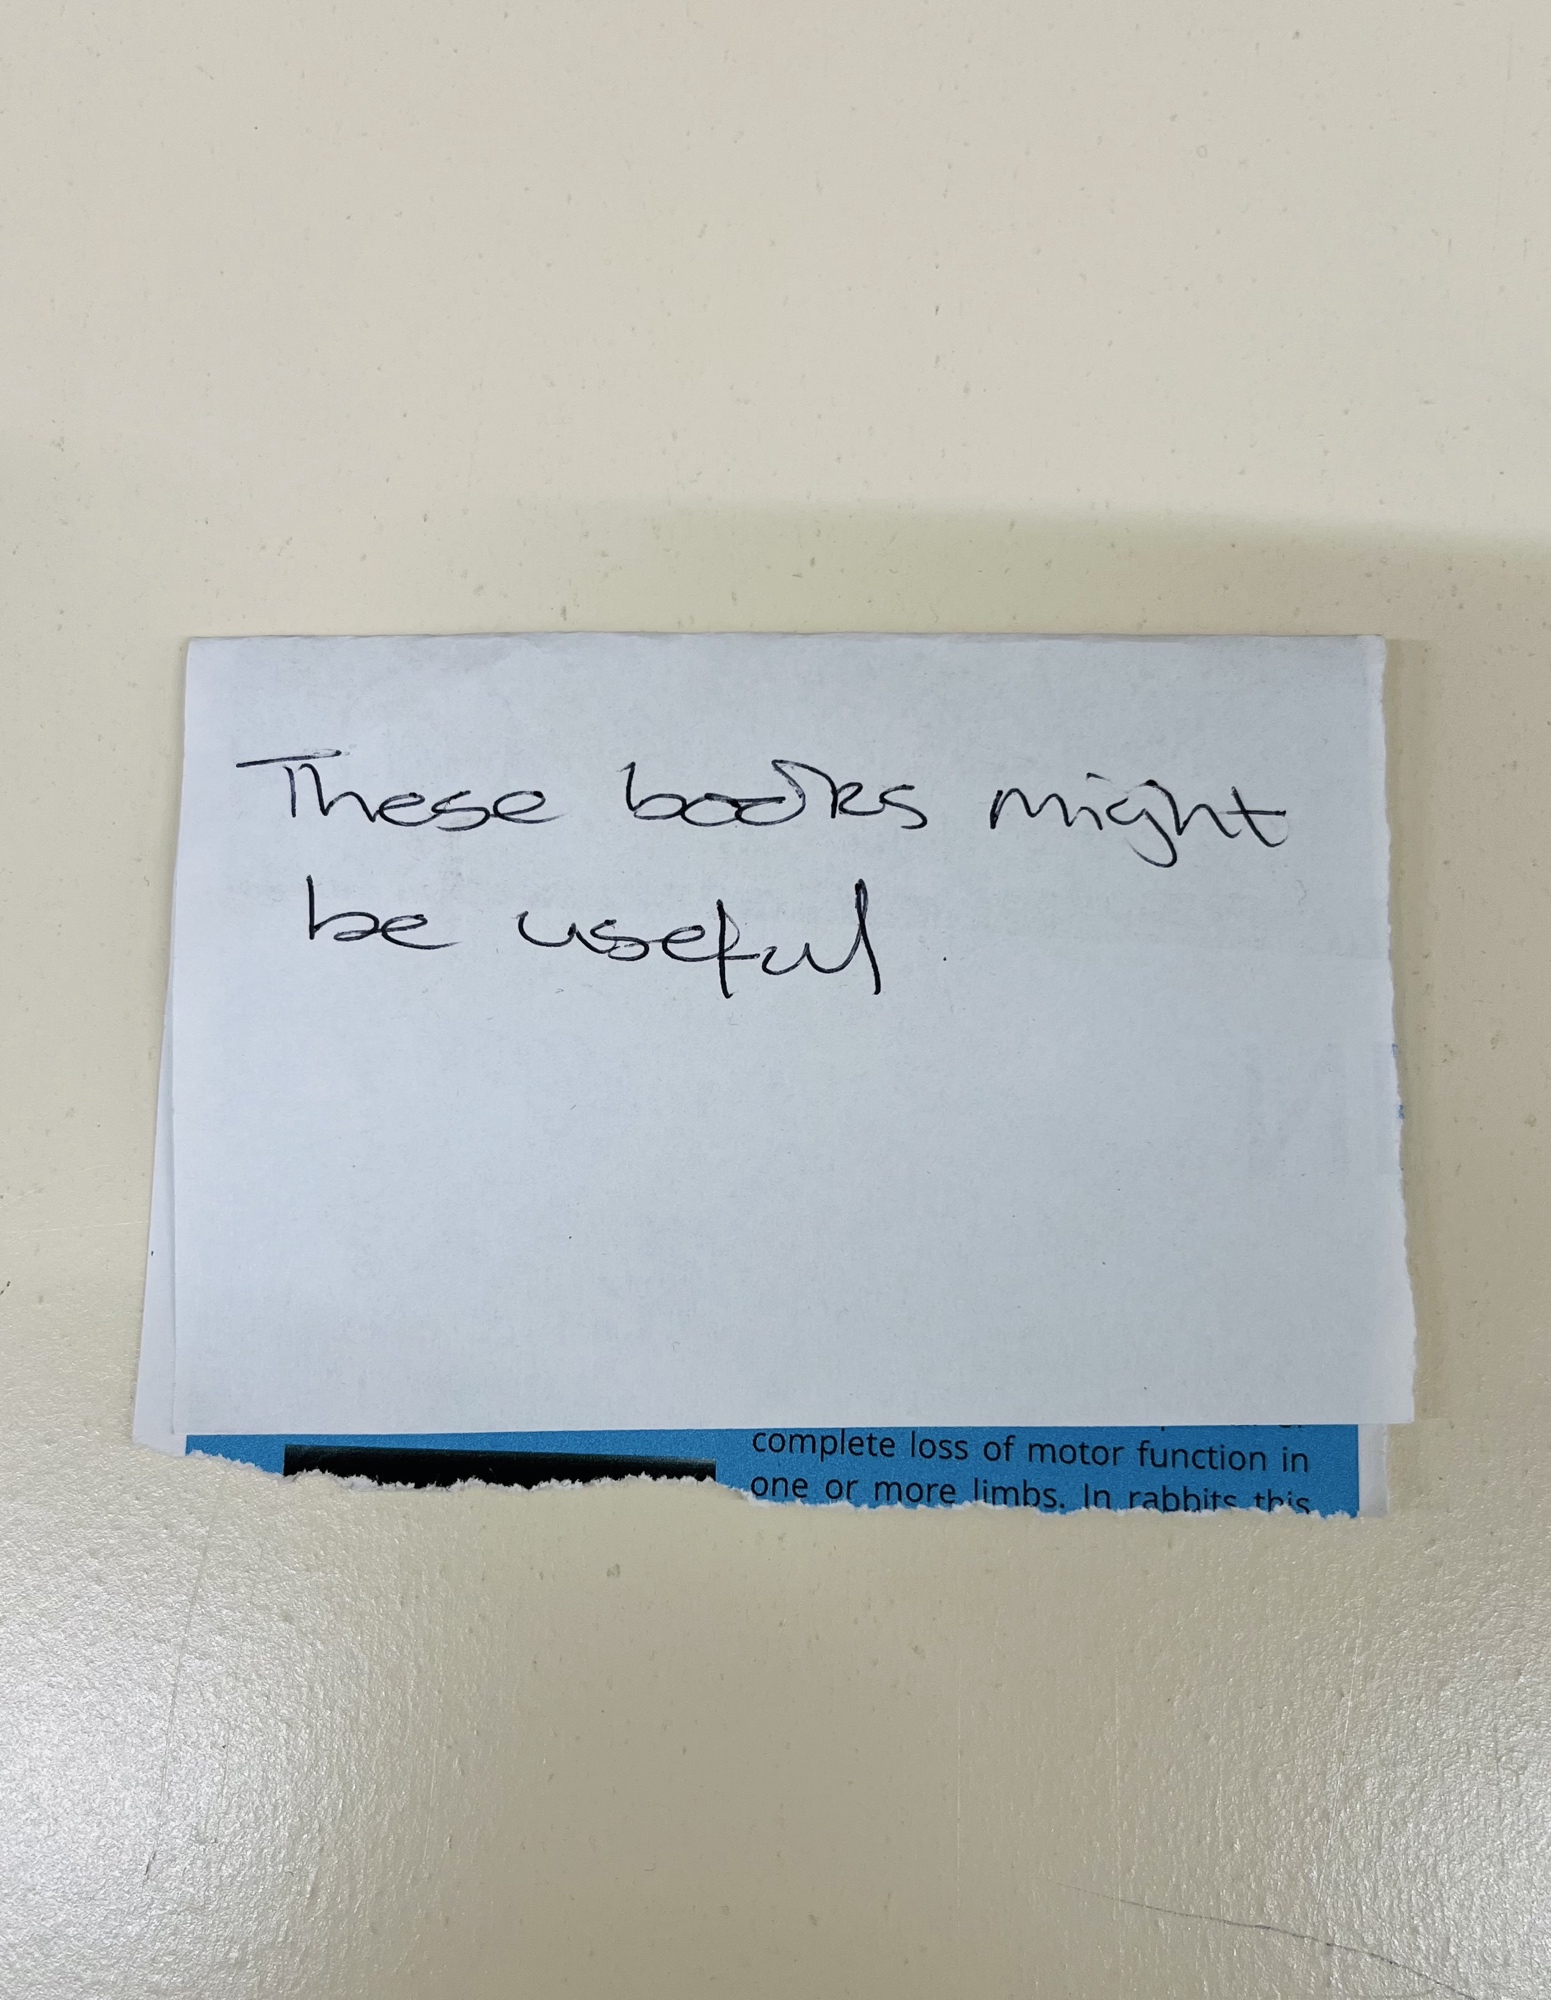 These books might
be useful.
complete loss of motor function in
one or more limbs. In rabbits this